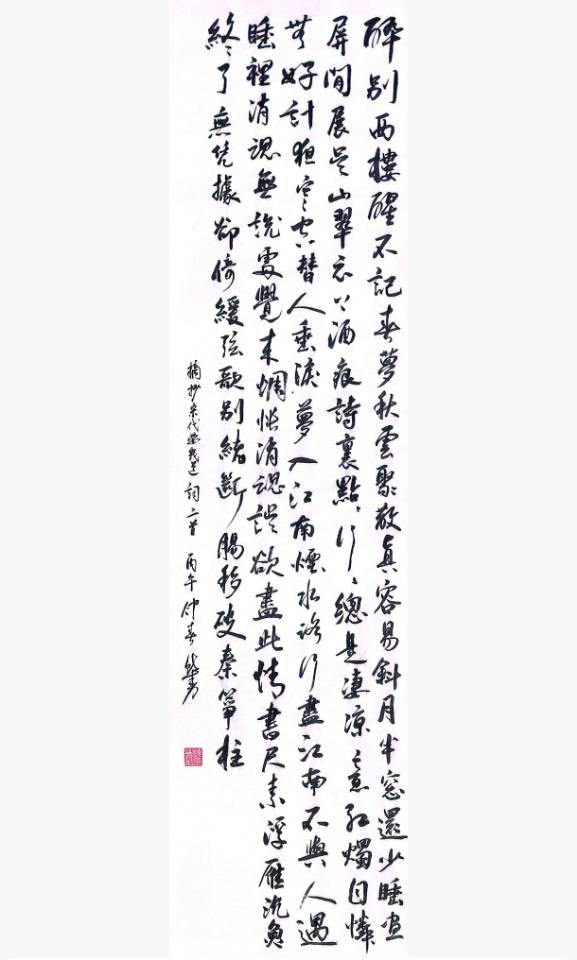 醉别西樓醒不記春夢秋雲聚散真容易斜月半窗還少睡畫
屏閒展吴山翠衣上酒痕詩裏點〻行〻總是淒涼意紅燭自憐
無好計夜寒空替人垂淚夢入江南煙水路行盡江南不與人遇
睡裡消魂無說處覺来惆悵消魂誤欲盡此情書尺素浮雁沉魚
終了無憑據卻倚緩弦歌别緒斷腸移破秦箏柱
摘抄宋代晏幾道詞二首 丙午仲春